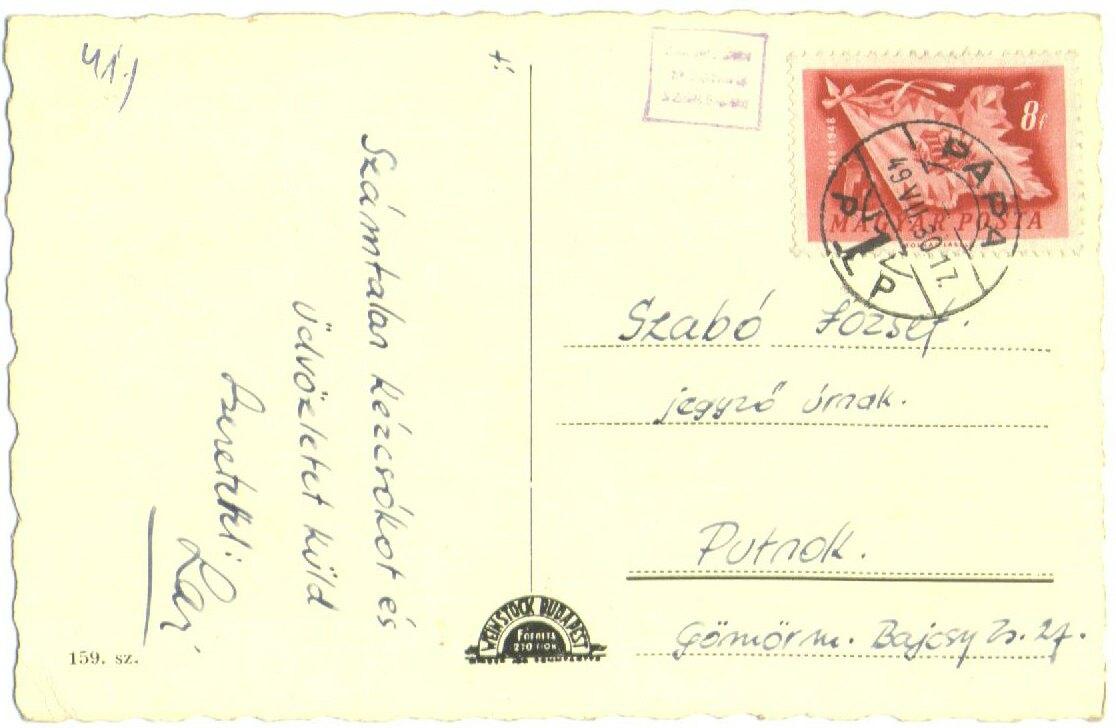 Számtalan kézcsókot és
üdvözletet küld
szeretettel:
159. sz.
WEINSTOCK BUDAPEST
8f
1848-1948
MAGYAR POSTA
PÁPA
49 VII. 30. 17.
P 1 P
Szabó József.
jegyző úrnak.
Putnok.
Gömörm. Bajcsy Zs. 27.